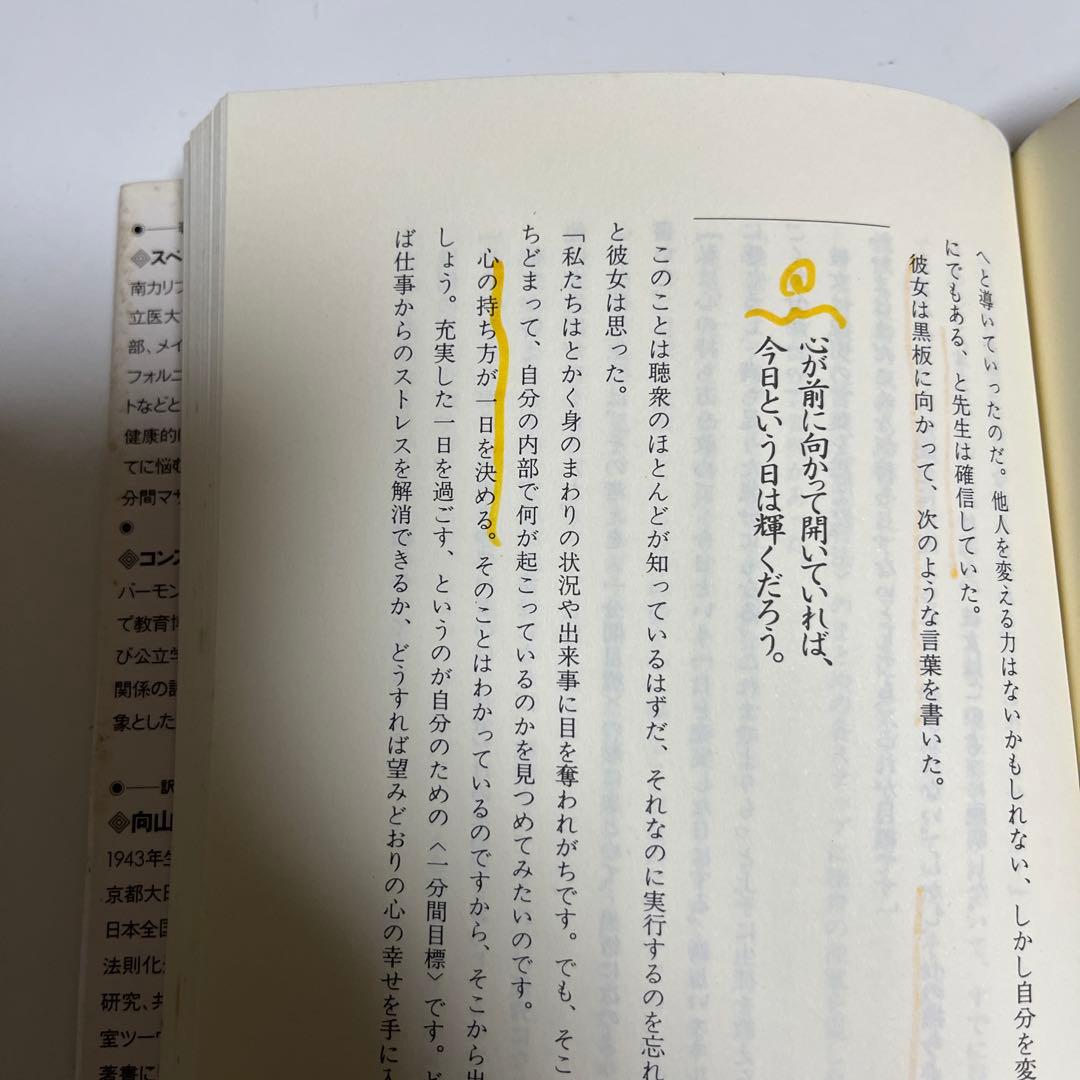 へと導いていったのだ。他人を変える力はないかもしれない、しかし自分を変
にでもある、と先生は確信していた。
彼女は黒板に向かって、次のような言葉を書いた。
心が前に向かって開いていれば、
今日という日は輝くだろう。
このことは聴衆のほとんどが知っているはずだ、それなのに実行するのを忘れ
と彼女は思った。
「私たちはとかく身のまわりの状況や出来事に目を奪われがちです。でも、そこ
ちどまって、自分の内部で何が起こっているのかを見つめてみたいのです。
心の持ち方が一日を決める。そのことはわかっているのですから、そこから出
しょう。充実した一日を過ごす、というのが自分のための〈一分間目標〉です。ど
ば仕事からのストレスを解消できるか、どうすれば望みどおりの心の幸せを手に入
スペ
南カリフ
立医大
部、メイ
フォルニ
トなどと
健康的
てに悩む
分間マサ
コンス
バーモン
で教育博
び公立学
関係の
象とした
訳
向山
1943年生
京都大
日本全国
法則化
研究、共
室ツーウ
著書に